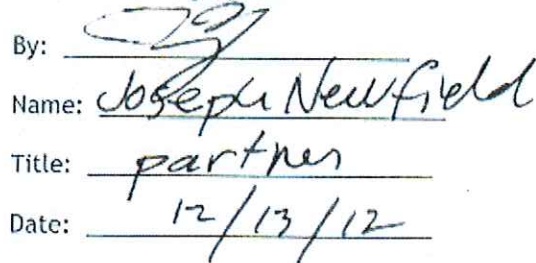 By:
Name: Joseph Newfield
Title: partner
Date: 12/13/12